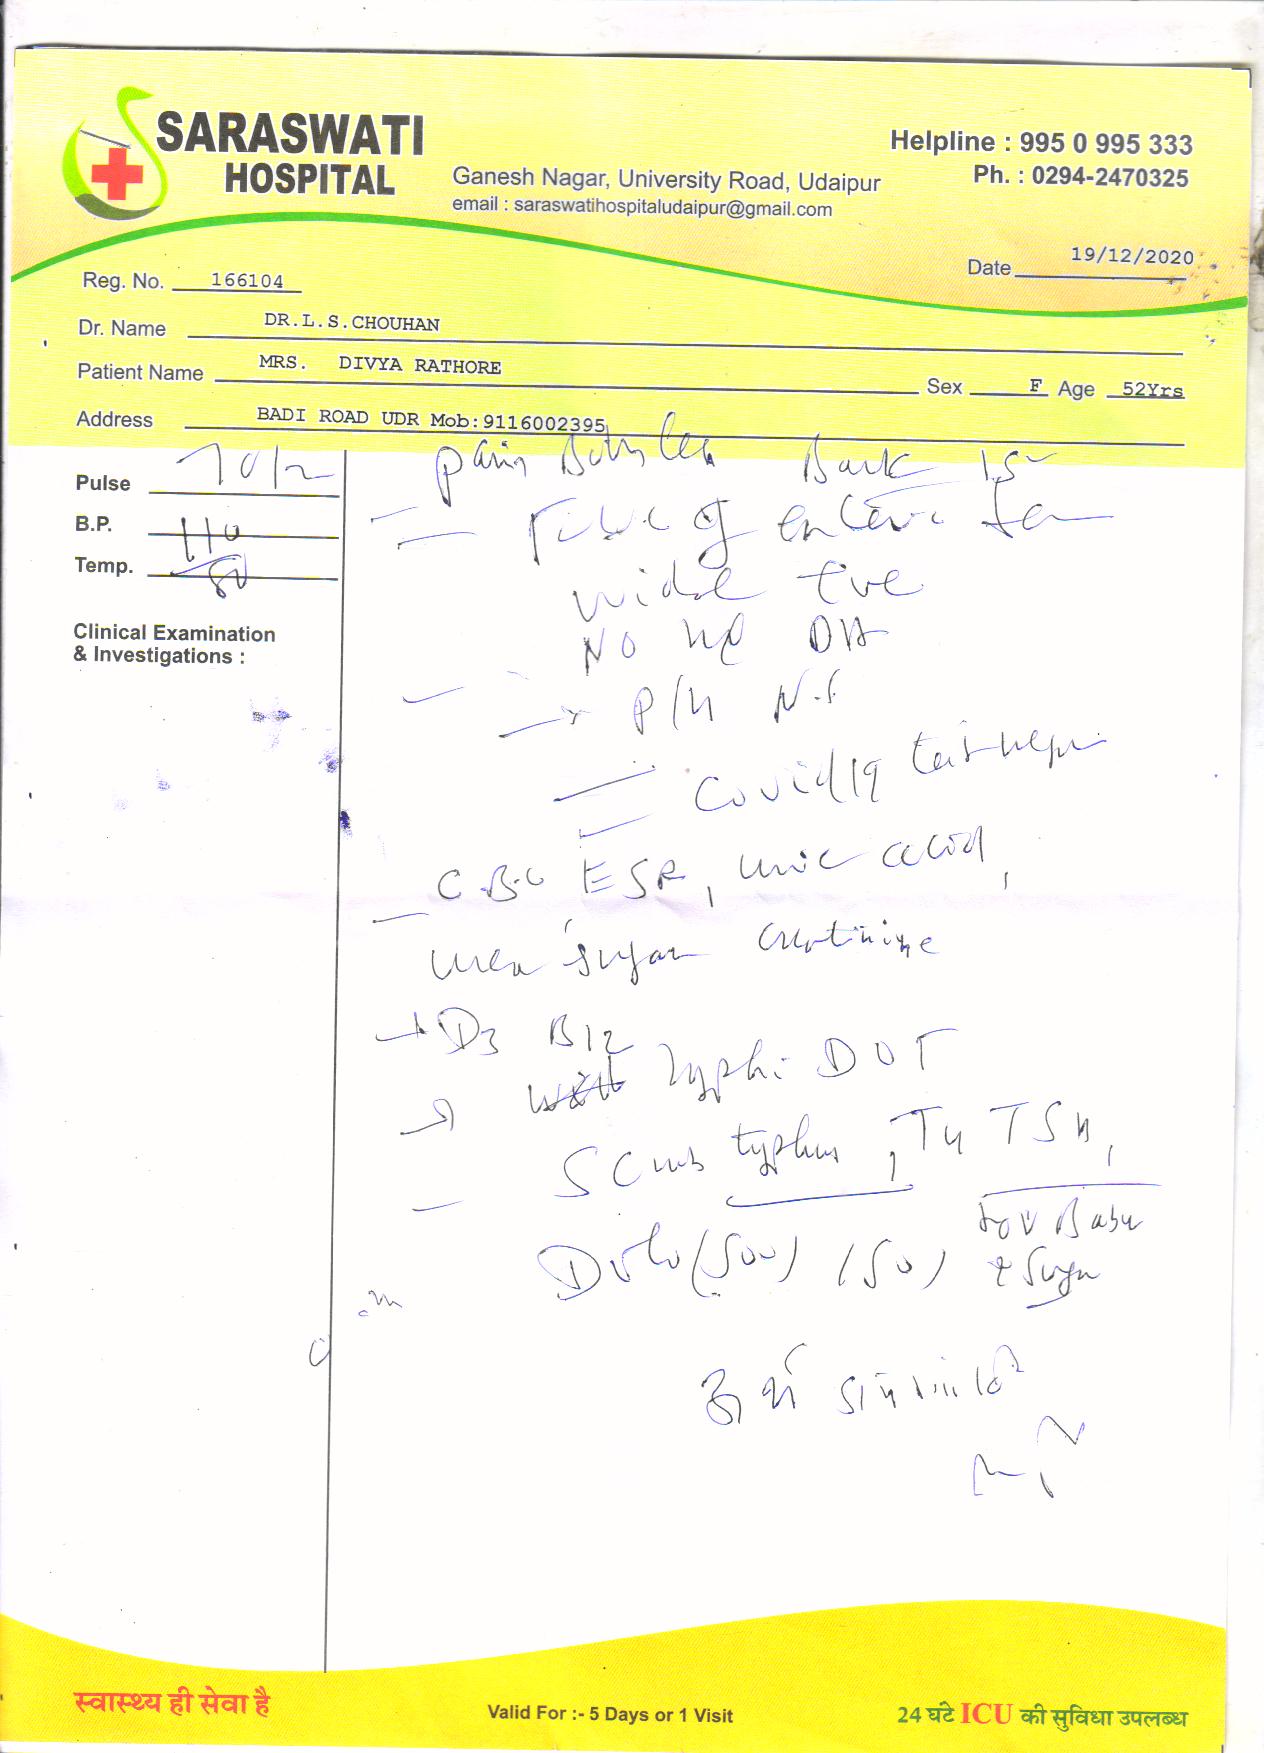 SARASWATI
HOSPITAL
Ganesh Nagar, University Road, Udaipur
email : saraswatihospitaludaipur@gmail.com
Helpline : 995 0 995 333
Ph. : 0294-2470325
Date 19/12/2020
Reg. No. 166104
Dr. Name DR.L.S.CHOUHAN
Patient Name MRS. DIVYA RATHORE Sex F Age 52Yrs
Address BADI ROAD UDR Mob:9116002395
Pulse 70/2
B.P. 110
Temp. 80
Clinical Examination
& Investigations :
Pain Both Leg
of enteric
widal +ve
NO
P/H N.
Covid19 test
C.B.C ESR, uric acid,
urea sugar creatinine
→ D3 B12
Typhi DOT
typhus, T4 TSH,
Dolo (500)
स्वास्थ्य ही सेवा है
Valid For :- 5 Days or 1 Visit
24 घंटे ICU की सुविधा उपलब्ध